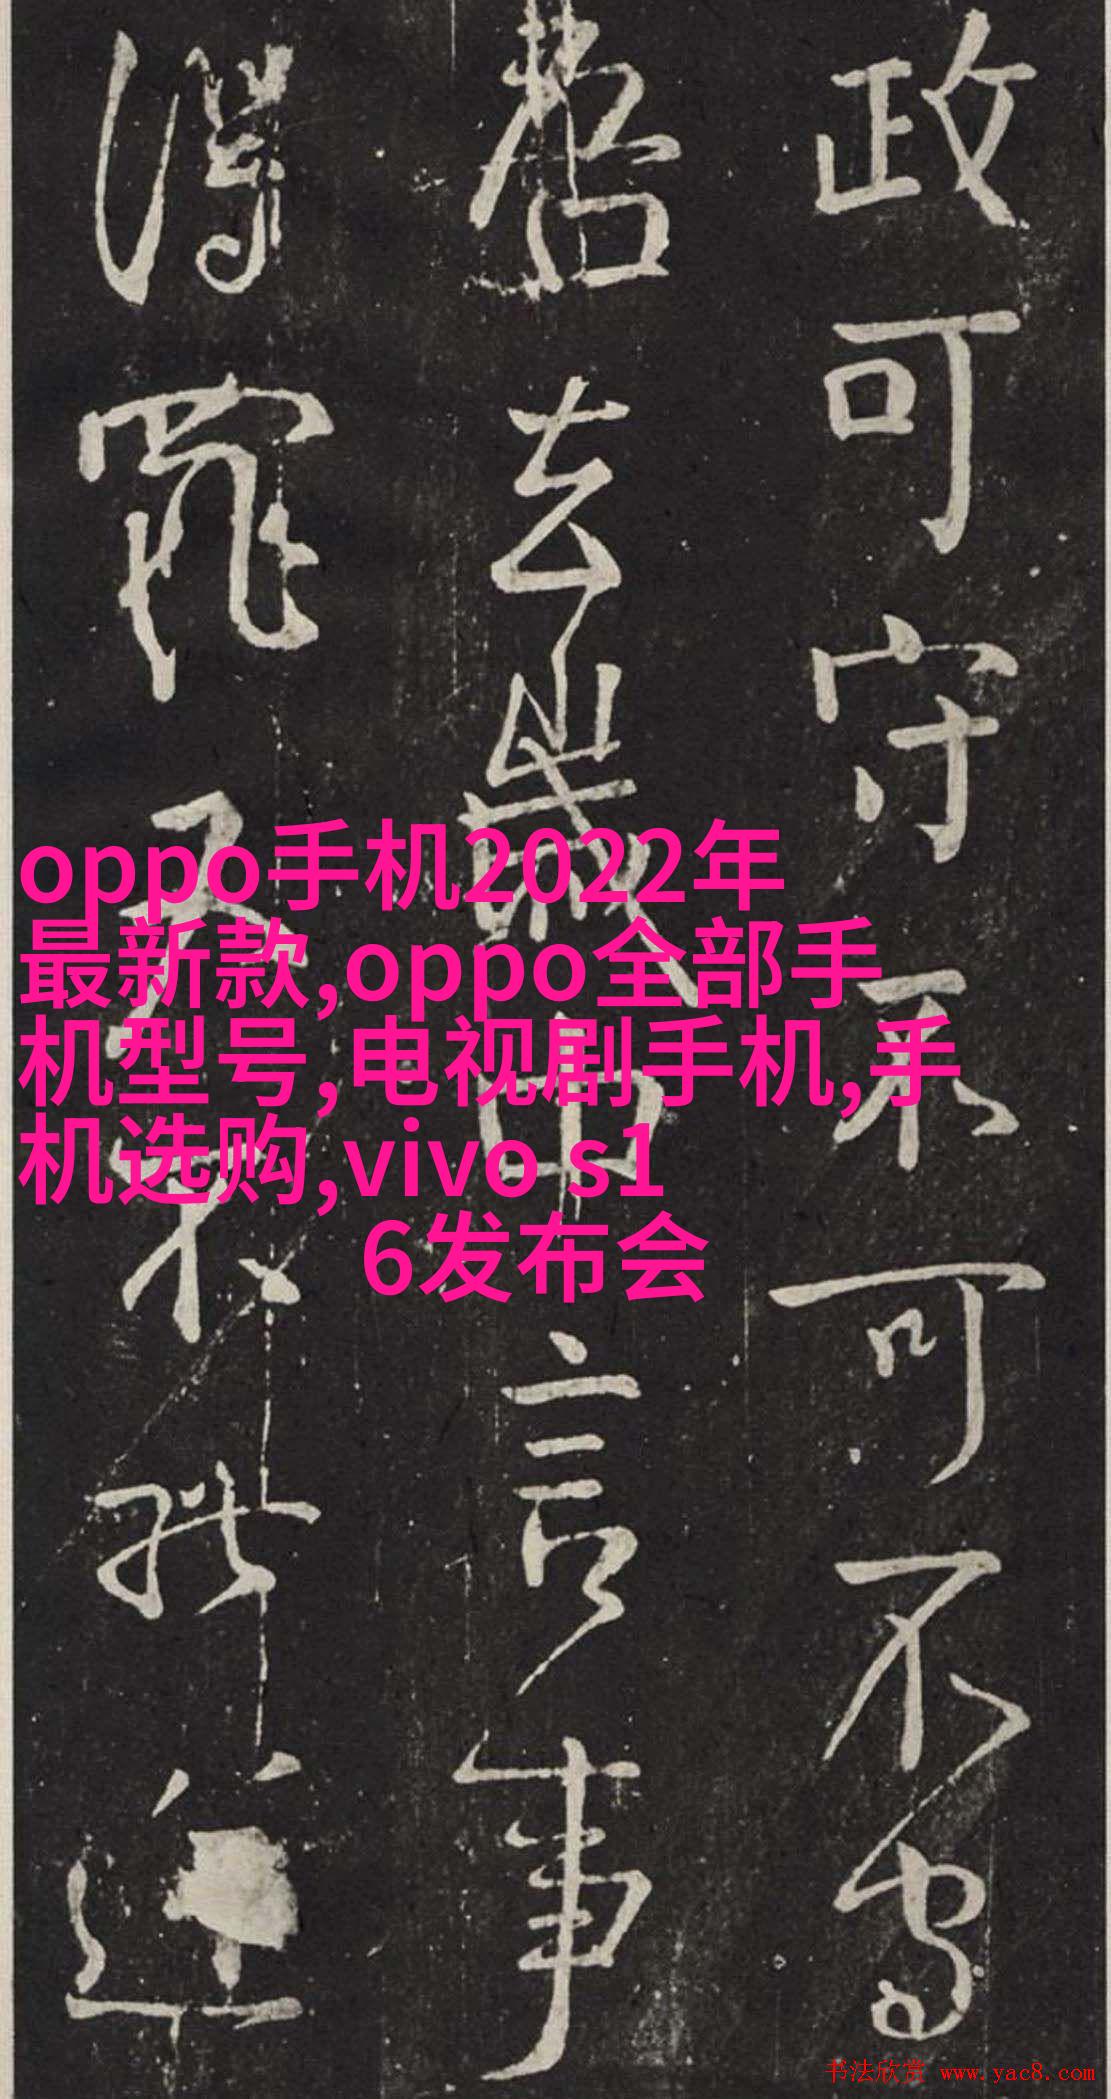 政可守不可不守
吾去歲中言事
得罪又不能逆
oppo手机2022年
最新款,oppo全部手
机型号,电视剧手机,手
机选购,vivo s1
6发布会
书法欣赏 www.yac8.com